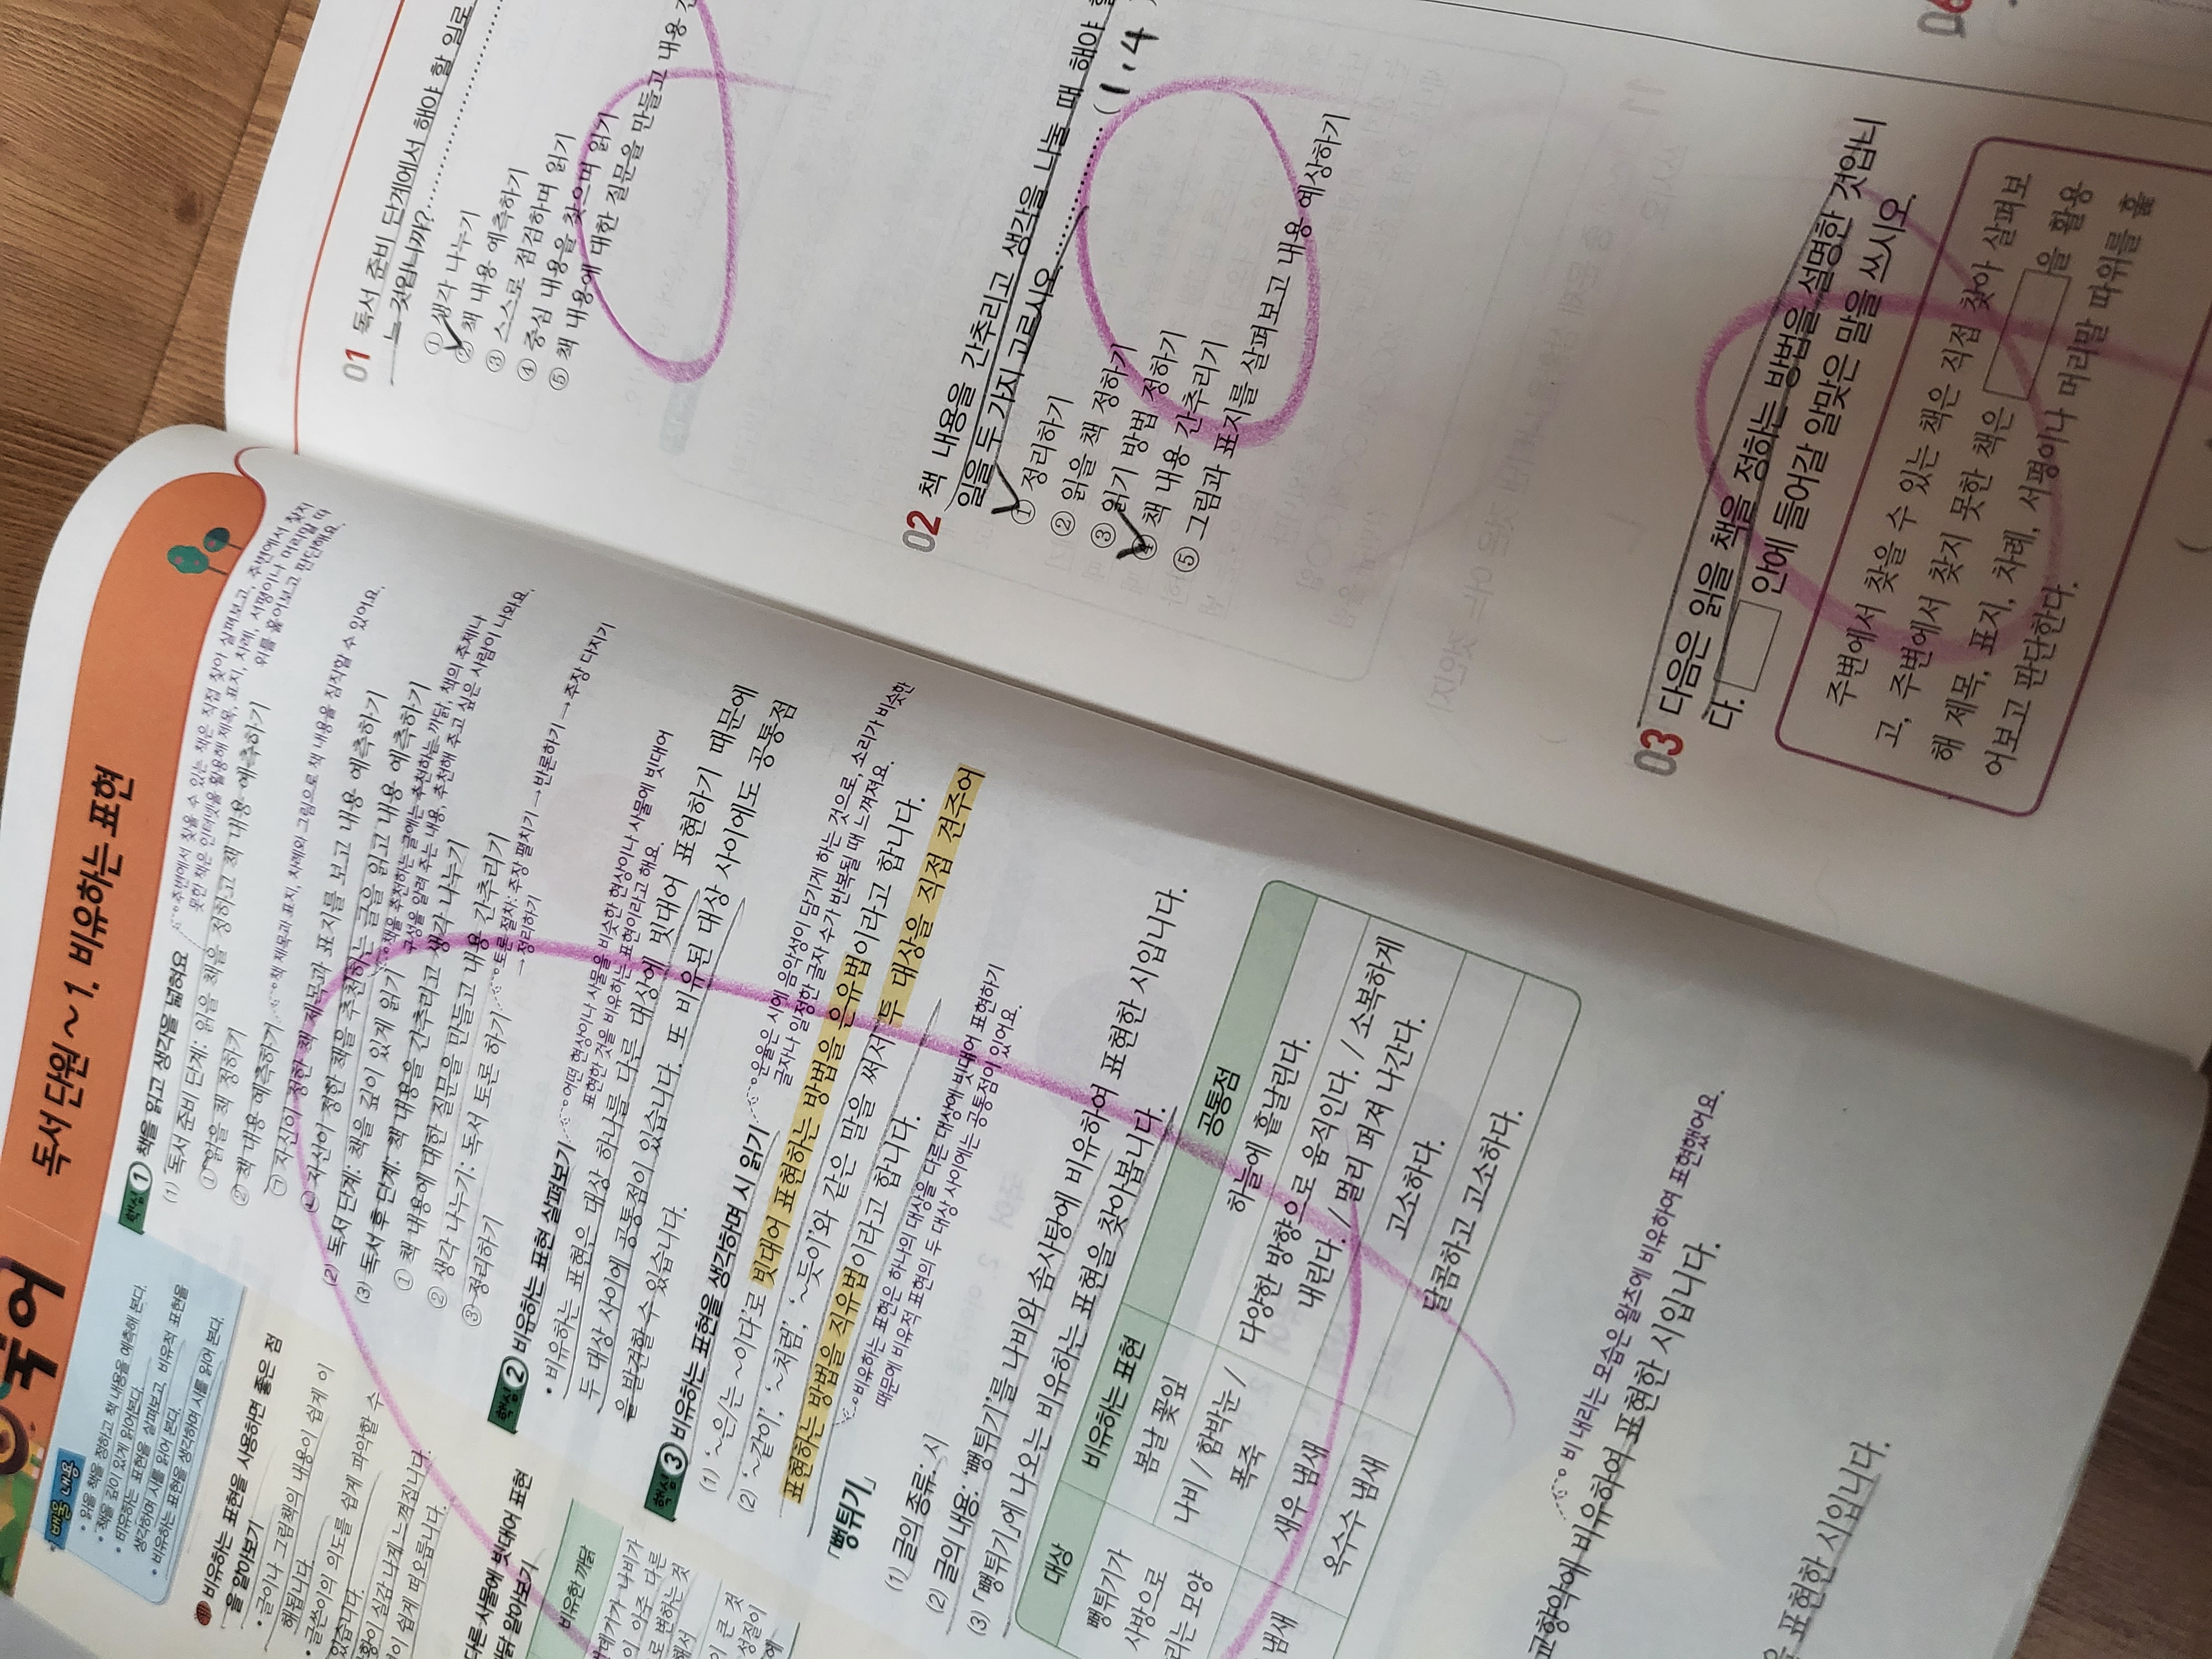 국어
독서 단원 ~ 1. 비유하는 표현
배울 내용
• 읽을 책을 정하고 책 내용을 예측해 본다.
• 책을 깊이 있게 읽어 본다.
• 비유하는 표현을 살펴보고, 비유적 표현을
생각하며 시를 읽어 본다.
• 비유하는 표현을 생각하며 시를 읽어 본다.
비유하는 표현을 사용하면 좋은 점
을 알아보기
• 글이나 그림책의 내용이 쉽게 이
해됩니다.
• 글쓴이의 의도를 쉽게 파악할 수
있습니다.
황이 실감 나게 느껴집니다.
이 쉽게 떠오릅니다.
다른 사물에 빗대어 표현
까닭 알아보기
비유한 까닭
핵심 1 책을 읽고 생각을 넓혀요
주변에서 찾을 수 있는 책은 직접 찾아 살펴보고, 주변에서 찾지
못한 책은 인터넷을 활용해 제목, 표지, 차례, 서평이나 머리말 따
위를 훑어보고 판단해요.
(1) 독서 준비 단계: 읽을 책을 정하고 책 내용 예측하기
① 읽을 책 정하기
② 책 내용 예측하기
책 제목과 표지, 차례와 그림으로 책 내용을 짐작할 수 있어요.
㉠ 자신이 정한 책 제목과 표지를 보고 내용 예측하기
㉡ 자신이 정한 책을 추천하는 글을 읽고 내용 예측하기
(2) 독서 단계: 책을 깊이 있게 읽기
책을 추천하는 글에는 추천하는 까닭, 책의 주제나
구성을 알려 주는 내용, 추천해 주고 싶은 사람이 나와요.
(3) 독서 후 단계: 책 내용을 간추리고 생각 나누기
① 책 내용에 대한 질문을 만들고 내용 간추리기
② 생각 나누기: 독서 토론 하기
토론 절차: 주장 펼치기 → 반론하기 → 주장 다지기
→ 정리하기
③ 정리하기
핵심 2 비유하는 표현 살펴보기
어떤 현상이나 사물을 비슷한 현상이나 사물에 빗대어
표현한 것을 비유하는 표현이라고 해요.
• 비유하는 표현은 대상 하나를 다른 대상에 빗대어 표현하기 때문에
두 대상 사이에 공통점이 있습니다. 또 비유된 대상 사이에도 공통점
을 발견할 수 있습니다.
핵심 3 비유하는 표현을 생각하며 시 읽기
운율은 시에 음악성이 담기게 하는 것으로, 소리가 비슷한
글자나 일정한 글자 수가 반복될 때 느껴져요.
(1) '~은/는 ~이다'로 빗대어 표현하는 방법을 은유법이라고 합니다.
(2) '~같이', '~처럼', '~듯이'와 같은 말을 써서 두 대상을 직접 견주어
표현하는 방법을 직유법이라고 합니다.
비유하는 표현은 하나의 대상을 다른 대상에 빗대어 표현하기
때문에 비유적 표현의 두 대상 사이에는 공통점이 있어요.
「뻥튀기」
(1) 글의 종류: 시
(2) 글의 내용: '뻥튀기'를 나비와 솜사탕에 비유하여 표현한 시입니다.
(3) 「뻥튀기」에 나오는 비유하는 표현을 찾아봅니다.
대상 비유하는 표현 공통점
뻥튀기가
사방으로
리는 모양
봄날 꽃잎 하늘에 흩날린다.
나비 / 함박눈 /
폭죽
다양한 방향으로 움직인다. / 소복하게
내린다. / 멀리 퍼져 나간다.
냄새
새우 냄새 고소하다.
옥수수 냄새 달콤하고 고소하다.
비 내리는 모습은 왈츠에 비유하여 표현했어요.
교향악에 비유하여 표현한 시입니다.
표현한 시입니다.
01 독서 준비 단계에서 해야 할 일로
는 것입니까?
① 생각 나누기
② 책 내용 예측하기
③ 스스로 점검하며 읽기
④ 중심 내용을 찾으며 읽기
⑤ 책 내용에 대한 질문을 만들고 내용
02 책 내용을 간추리고 생각을 나눌 때 해야
일을 두 가지 고르시오. (1,4
① 정리하기
② 읽을 책 정하기
③ 읽기 방법 정하기
④ 책 내용 간추리기
⑤ 그림과 표지를 살펴보고 내용 예상하기
03 다음은 읽을 책을 정하는 방법을 설명한 것입니
다. 안에 들어갈 알맞은 말을 쓰시오.
주변에서 찾을 수 있는 책은 직접 찾아 살펴보
고, 주변에서 찾지 못한 책은 을 활용
해 제목, 표지, 차례, 서평이나 머리말 따위를 훑
어보고 판단한다.